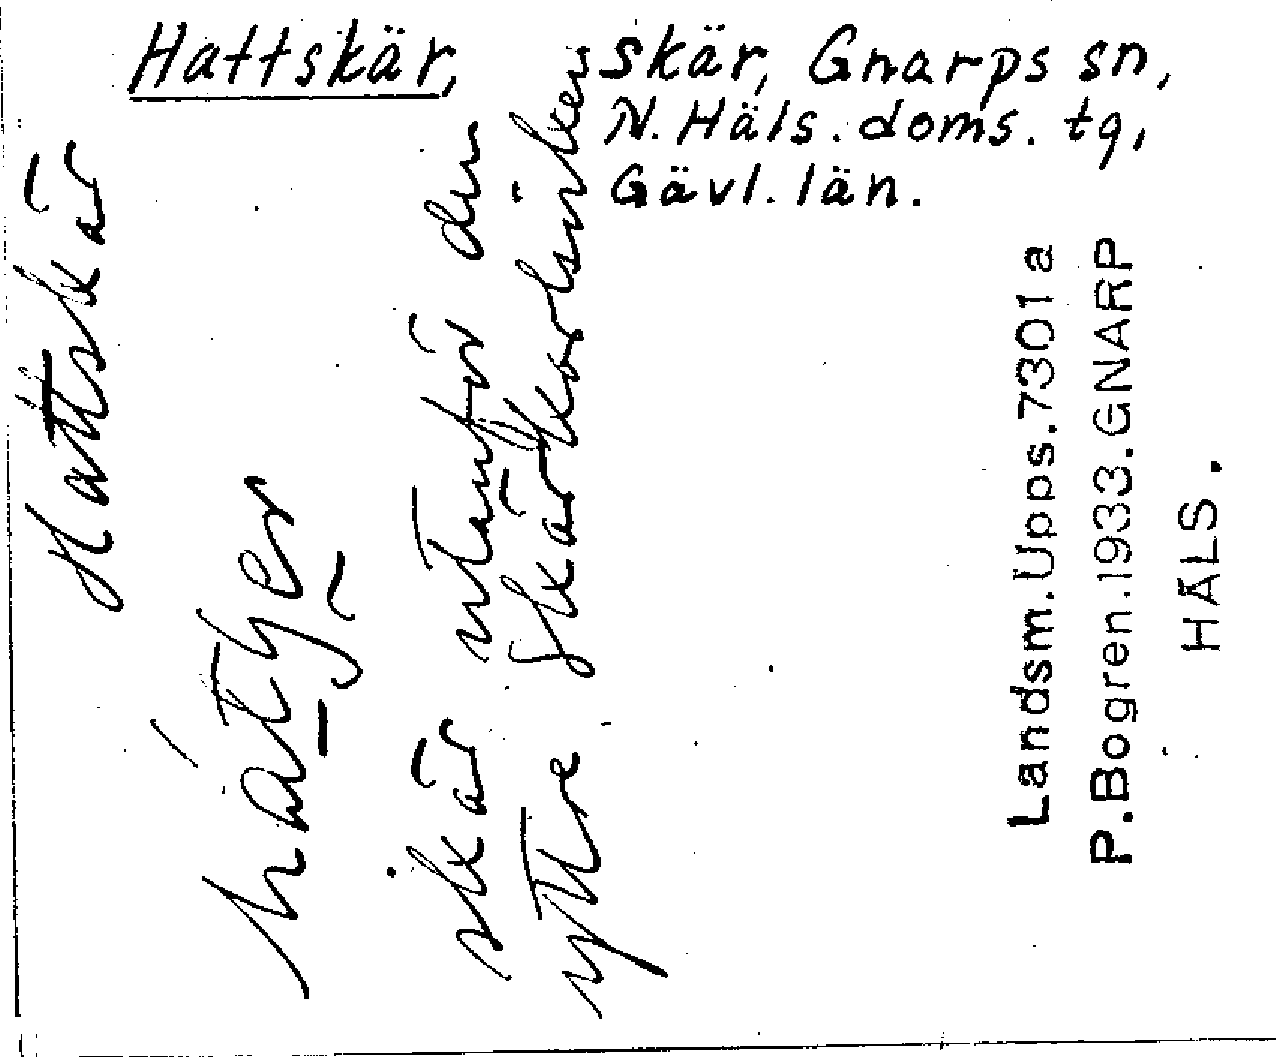 Hattskär, skär, Gnarps sn,
N. Häls. doms. tg,
Gävl. län.
Hattskär
skär utanför den
yttre
Landsm. Upps. 7301 a
P. Bogren. 1933. GNARP
HÄLS.